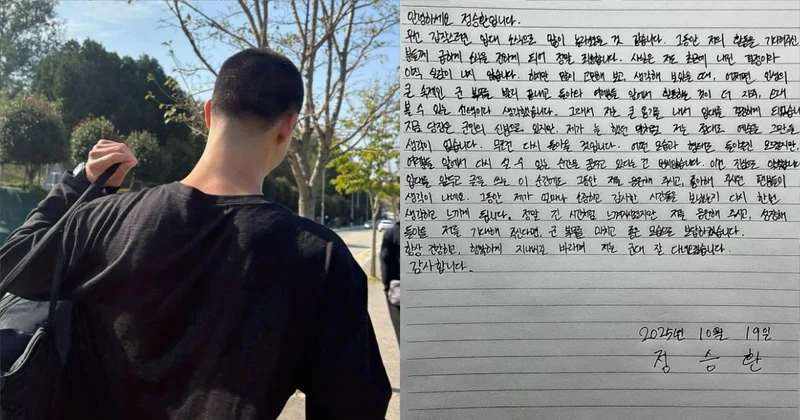 안녕하세요 정승환입니다.
우선 갑작스러운 입대 소식으로 많이 놀라셨을 것 같습니다. 그동안 저의 활동을 기다려주신
분들께 급하게 소식을 전하게 되어 정말 죄송합니다. 사실은 저도 혼자 내린 결정이라
아직 실감이 나지 않습니다. 하지만 많이 고민해 보고, 생각해 보았을 때, 어쩌면 인생의
큰 숙제인 군 복무를 빨리 끝내고 돌아와 여러분들 앞에서 하는 것이 더 자주, 오래
볼 수 있는 선택이라 생각했습니다. 그래서 저는 큰 용기를 내서 입대를 결정하게 되었습니다
지금 당장은 군인의 신분으로 있지만, 제가 늘 했던 말처럼 저는 절대로 그만둘
생각이 없습니다. 무조건 다시 돌아올 것입니다. 어떤 모습과 형태로 돌아올진 모르지만,
여러분들 앞에서 다시 설 수 있는 순간을 꿈꾸고 있다는 건 이런 진심도
입대를 앞두고 글을 쓰는 이 순간에도 그동안 저를 응원해 주시고, 좋아해 주시던 팬분들이
생각이 나네요. 그동안 제가 얼마나 소중하고 감사한 시간들을 보냈는지 다시 한번
생각하고 느끼게 됩니다. 정말 긴 시간처럼 느껴지겠지만 저를 응원해 주시고, 성장해
돌아올 저를 기대해 주신다면, 군 복무를 마치고 좋은 모습으로 보답하겠습니다.
항상 건강하고, 행복하게 지내시길 바라며 저는 군대 잘 다녀오겠습니다.
감사합니다.
2025년 10월 19일
정 승 환